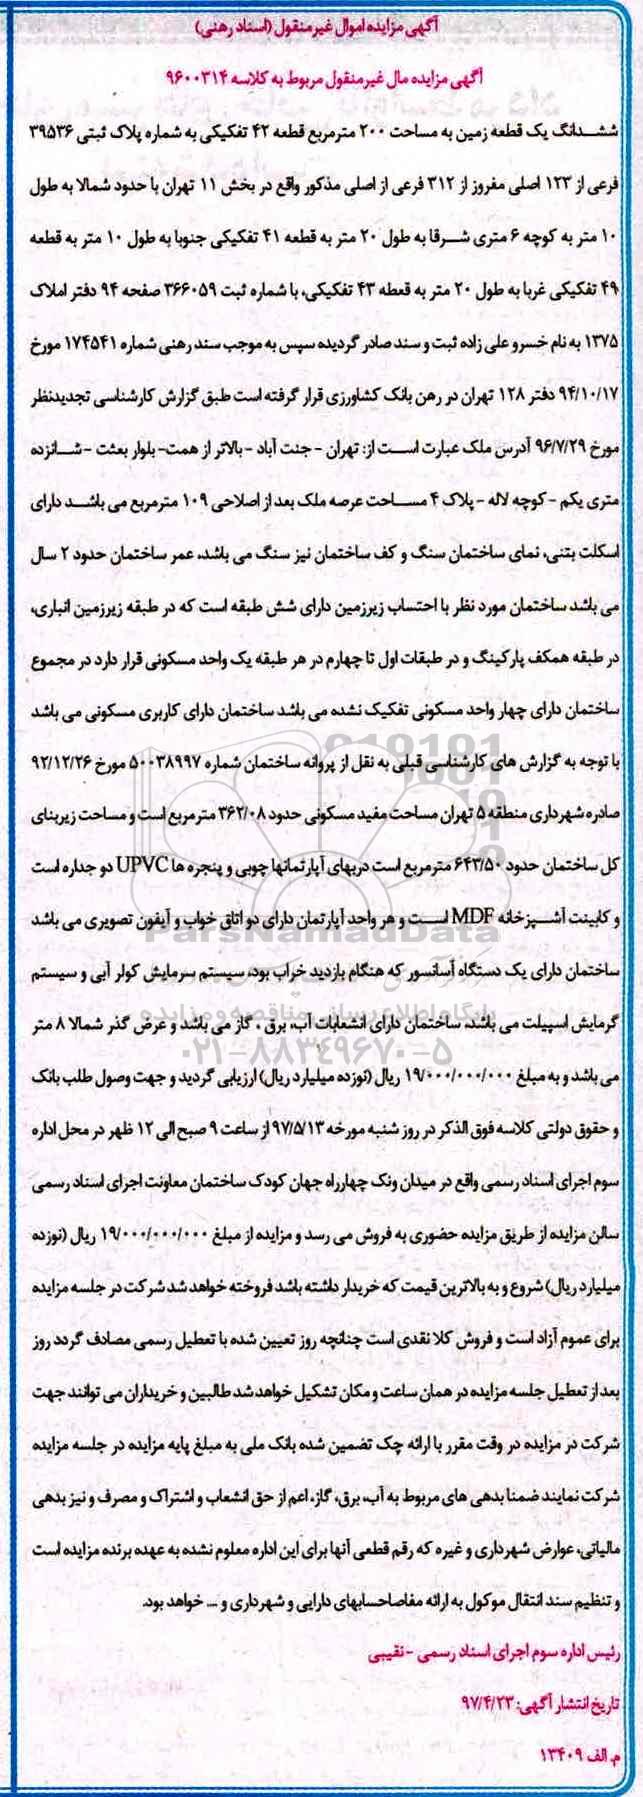 آگهی مزایده اموال غیرمنقول (اسناد رهنی)
آگهی مزایده مال غیرمنقول مربوط به کلاسه ۹۶۰۰۳۱۴
ششدانگ یک قطعه زمین به مساحت ۲۰۰ مترمربع قطعه ۴۲ تفکیکی به شماره پلاک ثبتی ۳۹۵۳۶
فرعی از ۱۲۳ اصلی مفروز از ۳۱۲ فرعی از اصلی مذکور واقع در بخش ۱۱ تهران با حدود شمالا به طول
۱۰ متر به کوچه ۶ متری شرقا به طول ۲۰ متر به قطعه ۴۱ تفکیکی جنوبا به طول ۱۰ متر به قطعه
۴۹ تفکیکی غربا به طول ۲۰ متر به قعطه ۴۳ تفکیکی، با شماره ثبت ۳۶۶۰۵۹ صفحه ۹۴ دفتر املاک
۱۳۷۵ به نام خسرو علی زاده ثبت و سند صادر گردیده سپس به موجب سند رهنی شماره ۱۷۴۵۴۱ مورخ
۹۴/۱۰/۱۷ دفتر ۱۲۸ تهران در رهن بانک کشاورزی قرار گرفته است طبق گزارش کارشناسی تجدیدنظر
مورخ ۹۶/۷/۲۹ آدرس ملک عبارت است از: تهران - جنت آباد - بالاتر از همت- بلوار بعثت - شانزده
متری یکم - کوچه لاله - پلاک ۴ مساحت عرصه ملک بعد از اصلاحی ۱۰۹ مترمربع می باشد دارای
اسکلت بتنی، نمای ساختمان سنگ و کف ساختمان نیز سنگ می باشد، عمر ساختمان حدود ۲ سال
می باشد ساختمان مورد نظر با احتساب زیرزمین دارای شش طبقه است که در طبقه زیرزمین انباری،
در طبقه همکف پارکینگ و در طبقات اول تا چهارم در هر طبقه یک واحد مسکونی قرار دارد در مجموع
ساختمان دارای چهار واحد مسکونی تفکیک نشده می باشد ساختمان دارای کاربری مسکونی می باشد
با توجه به گزارش های کارشناسی قبلی به نقل از پروانه ساختمان شماره ۵۰۰۳۸۹۹۷ مورخ ۹۲/۱۲/۲۶
صادره شهرداری منطقه ۵ تهران مساحت مفید مسکونی حدود ۳۶۲/۰۸ مترمربع است و مساحت زیربنای
کل ساختمان حدود ۶۴۳/۵۰ مترمربع است دربهای آپارتمانها چوبی و پنجره ها UPVC دو جداره است
و کابینت آشپزخانه MDF است و هر واحد آپارتمان دارای دو اتاق خواب و آیفون تصویری می باشد
ParsNamadData
ساختمان دارای یک دستگاه آسانسور که هنگام بازدید خراب بود، سیستم سرمایش کولر آبی و سیستم
پایگاه اطلاع رسانی مناقصه و مزایده
گرمایش اسپیلت می باشد، ساختمان دارای انشعابات آب، برق ، گاز می باشد و عرض گذر شمالا ۸ متر
۰۲۱-۸۸۳۴۹۶۷۰-۵
می باشد و به مبلغ ۱۹/۰۰۰/۰۰۰/۰۰۰ ریال (نوزده میلیارد ریال) ارزیابی گردید و جهت وصول طلب بانک
و حقوق دولتی کلاسه فوق الذکر در روز شنبه مورخه ۹۷/۵/۱۳ از ساعت ۹ صبح الی ۱۲ ظهر در محل اداره
سوم اجرای اسناد رسمی واقع در میدان ونک چهارراه جهان کودک ساختمان معاونت اجرای اسناد رسمی
سالن مزایده از طریق مزایده حضوری به فروش می رسد و مزایده از مبلغ ۱۹/۰۰۰/۰۰۰/۰۰۰ ریال (نوزده
میلیارد ریال) شروع و به بالاترین قیمت که خریدار داشته باشد فروخته خواهد شد شرکت در جلسه مزایده
برای عموم آزاد است و فروش کلا نقدی است چنانچه روز تعیین شده با تعطیل رسمی مصادف گردد روز
بعد از تعطیل جلسه مزایده در همان ساعت و مکان تشکیل خواهد شد طالبین و خریداران می توانند جهت
شرکت در مزایده در وقت مقرر با ارائه چک تضمین شده بانک ملی به مبلغ پایه مزایده در جلسه مزایده
شرکت نمایند ضمنا بدهی های مربوط به آب، برق، گاز، اعم از حق انشعاب و اشتراک و مصرف و نیز بدهی
مالیاتی، عوارض شهرداری و غیره که رقم قطعی آنها برای این اداره معلوم نشده به عهده برنده مزایده است
و تنظیم سند انتقال موکول به ارائه مفاصاحسابهای دارایی و شهرداری و ... خواهد بود.
رئیس اداره سوم اجرای اسناد رسمی - نقیبی
تاریخ انتشار آگهی: ۹۷/۴/۲۳
م. الف ۱۳۴۰۹